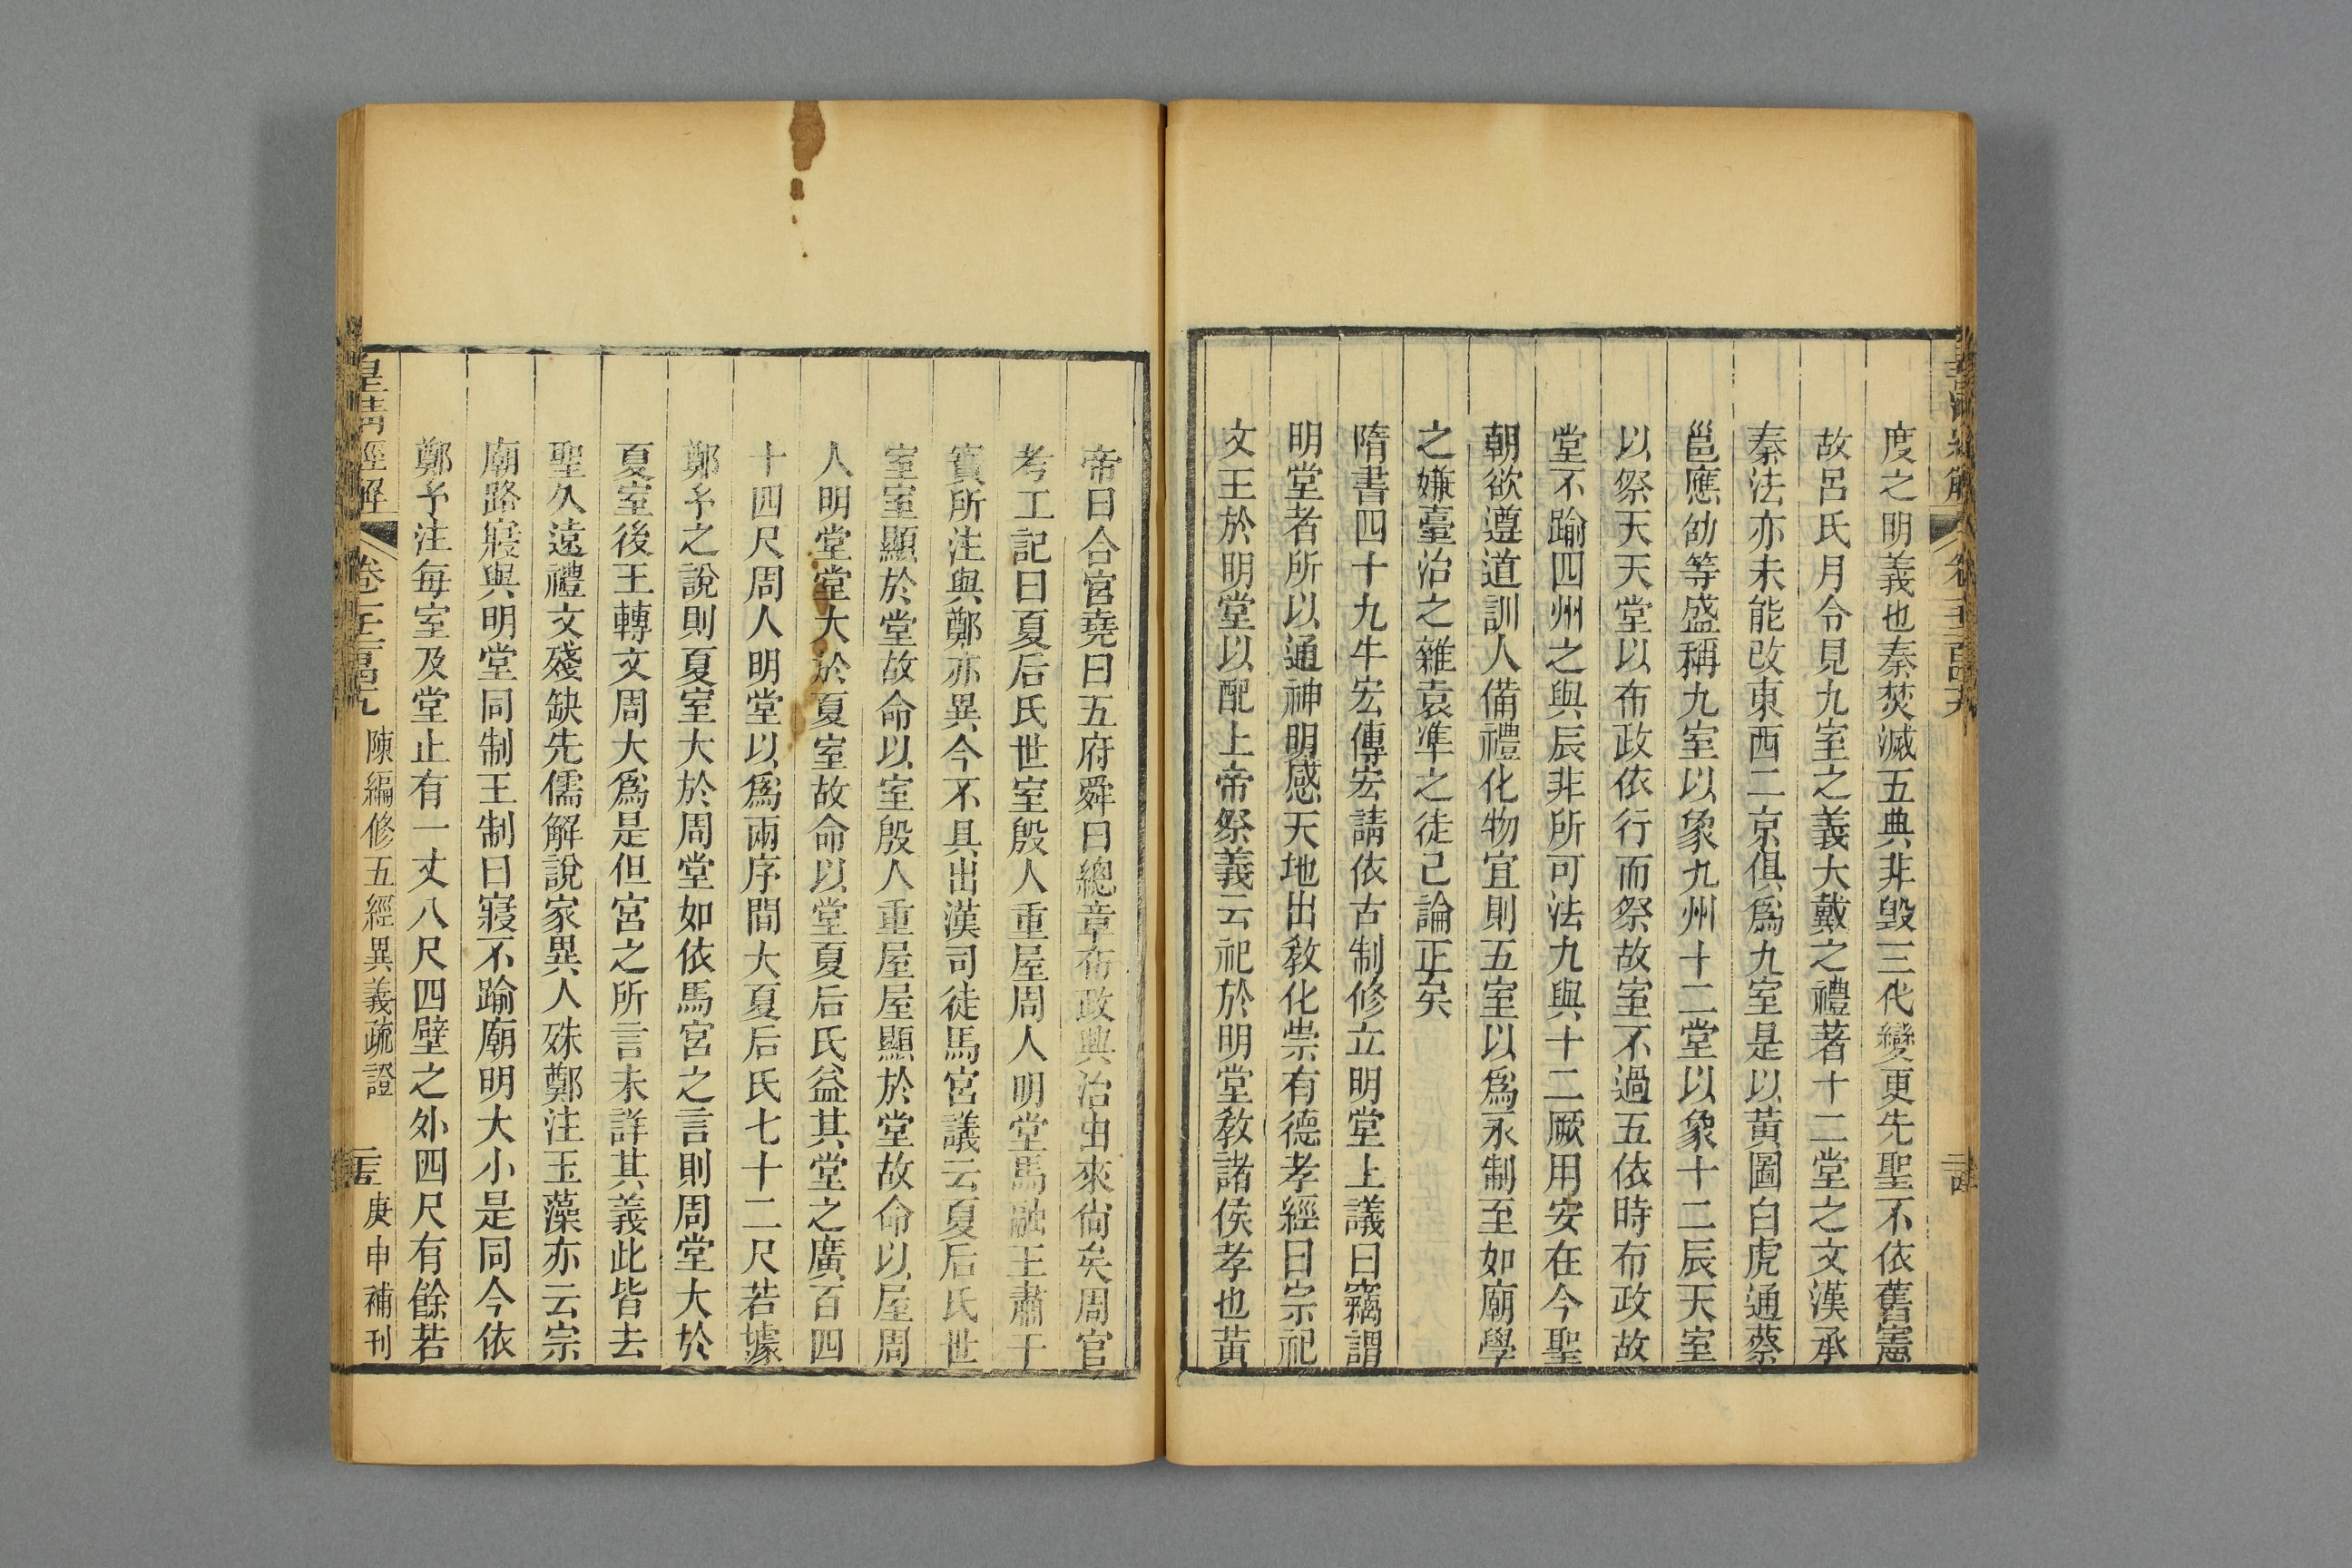 度之明義也秦焚滅五典非毀三代變更先聖不依舊憲
故呂氏月令見九室之義大戴之禮著十二堂之文漢承
秦法亦未能改東西二京俱爲九室是以黃圖白虎通蔡
邕應劭等盛稱九室以象九州十二堂以象十二辰天室
以祭天天堂以布政依行而祭故室不過五依時布政故
堂不踰四州之與辰非所可法九與十二厥用安在今聖
朝欲遵道訓人備禮化物宜則五室以爲永制至如廟學
之嫌臺治之雜袁準之徒已論正矣
隋書四十九牛宏傳宏請依古制修立明堂上議曰竊謂
明堂者所以通神明感天地出敎化崇有德孝經曰宗祀
文王於明堂以配上帝祭義云祀於明堂敎諸侯孝也黃
帝曰合宮堯曰五府舜曰總章布政興治由來尙矣周官
考工記曰夏后氏世室殷人重屋周人明堂馬融王肅干
寶所注與鄭亦異今不具出漢司徒馬宮議云夏后氏世
室室顯於堂故命以室殷人重屋屋顯於堂故命以屋周
人明堂堂大於夏室故命以堂夏后氏益其堂之廣百四
十四尺周人明堂以爲兩序間大夏后氏七十二尺若據
鄭予之說則夏室大於周堂如依馬宮之言則周堂大於
夏室後王轉文周大爲是但宮之所言未詳其義此皆去
聖久遠禮文殘缺先儒解說家異人殊鄭注玉藻亦云宗
廟路寢與明堂同制王制曰寢不踰廟明大小是同今依
鄭予注每室及堂止有一丈八尺四壁之外四尺有餘若
皇清經解 卷 陳編修五經異義疏證 庚申補刊